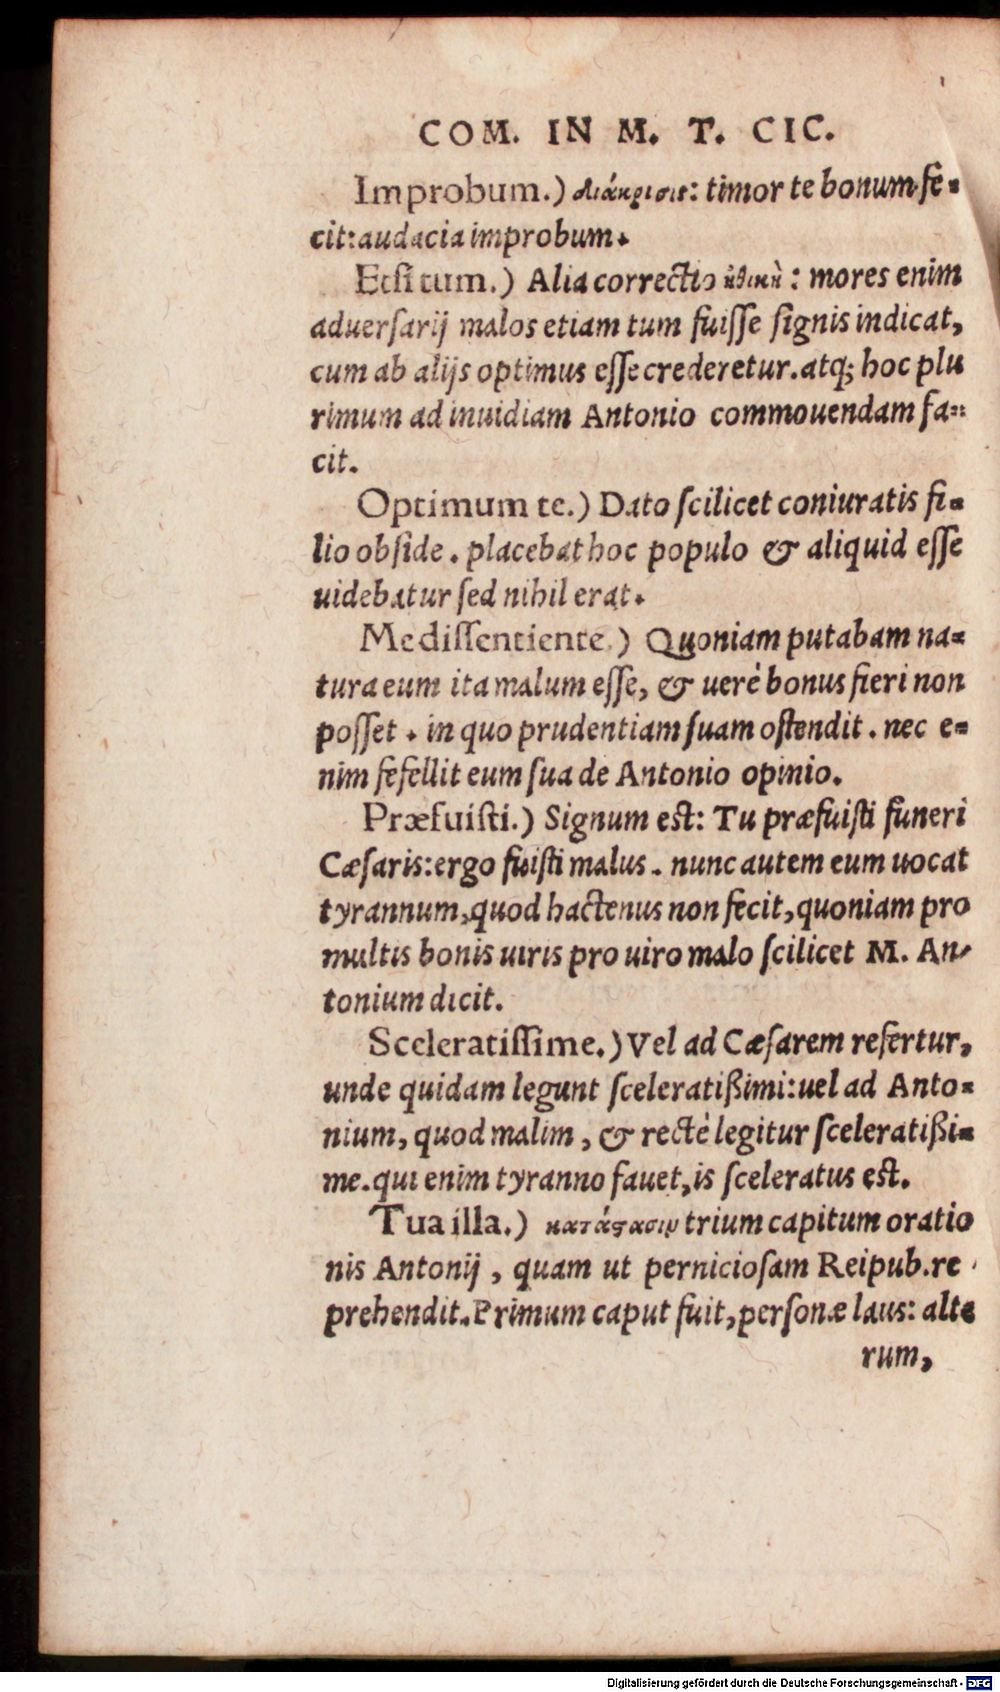 COM. IN M. T. CIC.
Improbum.) διάκρισις: timor te bonum fe-
cit: audacia improbum.
Etsi tum.) Alia correctio ἠθικὴ: mores enim
aduersarij malos etiam tum fuisse signis indicat,
cum ab alijs optimus esse crederetur. atq; hoc plu
rimum ad inuidiam Antonio commouendam fa-
cit.
Optimum te.) Dato scilicet coniuratis fi-
lio obside. placebat hoc populo & aliquid esse
uidebatur sed nihil erat.
Me dissentiente.) Quoniam putabam na-
tura eum ita malum esse, & uerè bonus fieri non
posset. in quo prudentiam suam ostendit. nec e-
nim fefellit eum sua de Antonio opinio.
Præfuisti.) Signum est: Tu præfuisti funeri
Cæsaris: ergo fuisti malus. nunc autem eum uocat
tyrannum, quod hactenus non fecit, quoniam pro
multis bonis uiris pro uiro malo scilicet M. An-
tonium dicit.
Sceleratissime.) Vel ad Cæsarem refertur,
unde quidam legunt sceleratißimi: uel ad Anto-
nium, quod malim, & rectè legitur sceleratißi-
me. qui enim tyranno fauet, is sceleratus est.
Tua illa.) κατάϛασιν trium capitum oratio
nis Antonij, quam ut perniciosam Reipub. re
prehendit. Primum caput fuit, personæ laus: alte
rum,
Digitalisierung gefördert durch die Deutsche Forschungsgemeinschaft - DFG